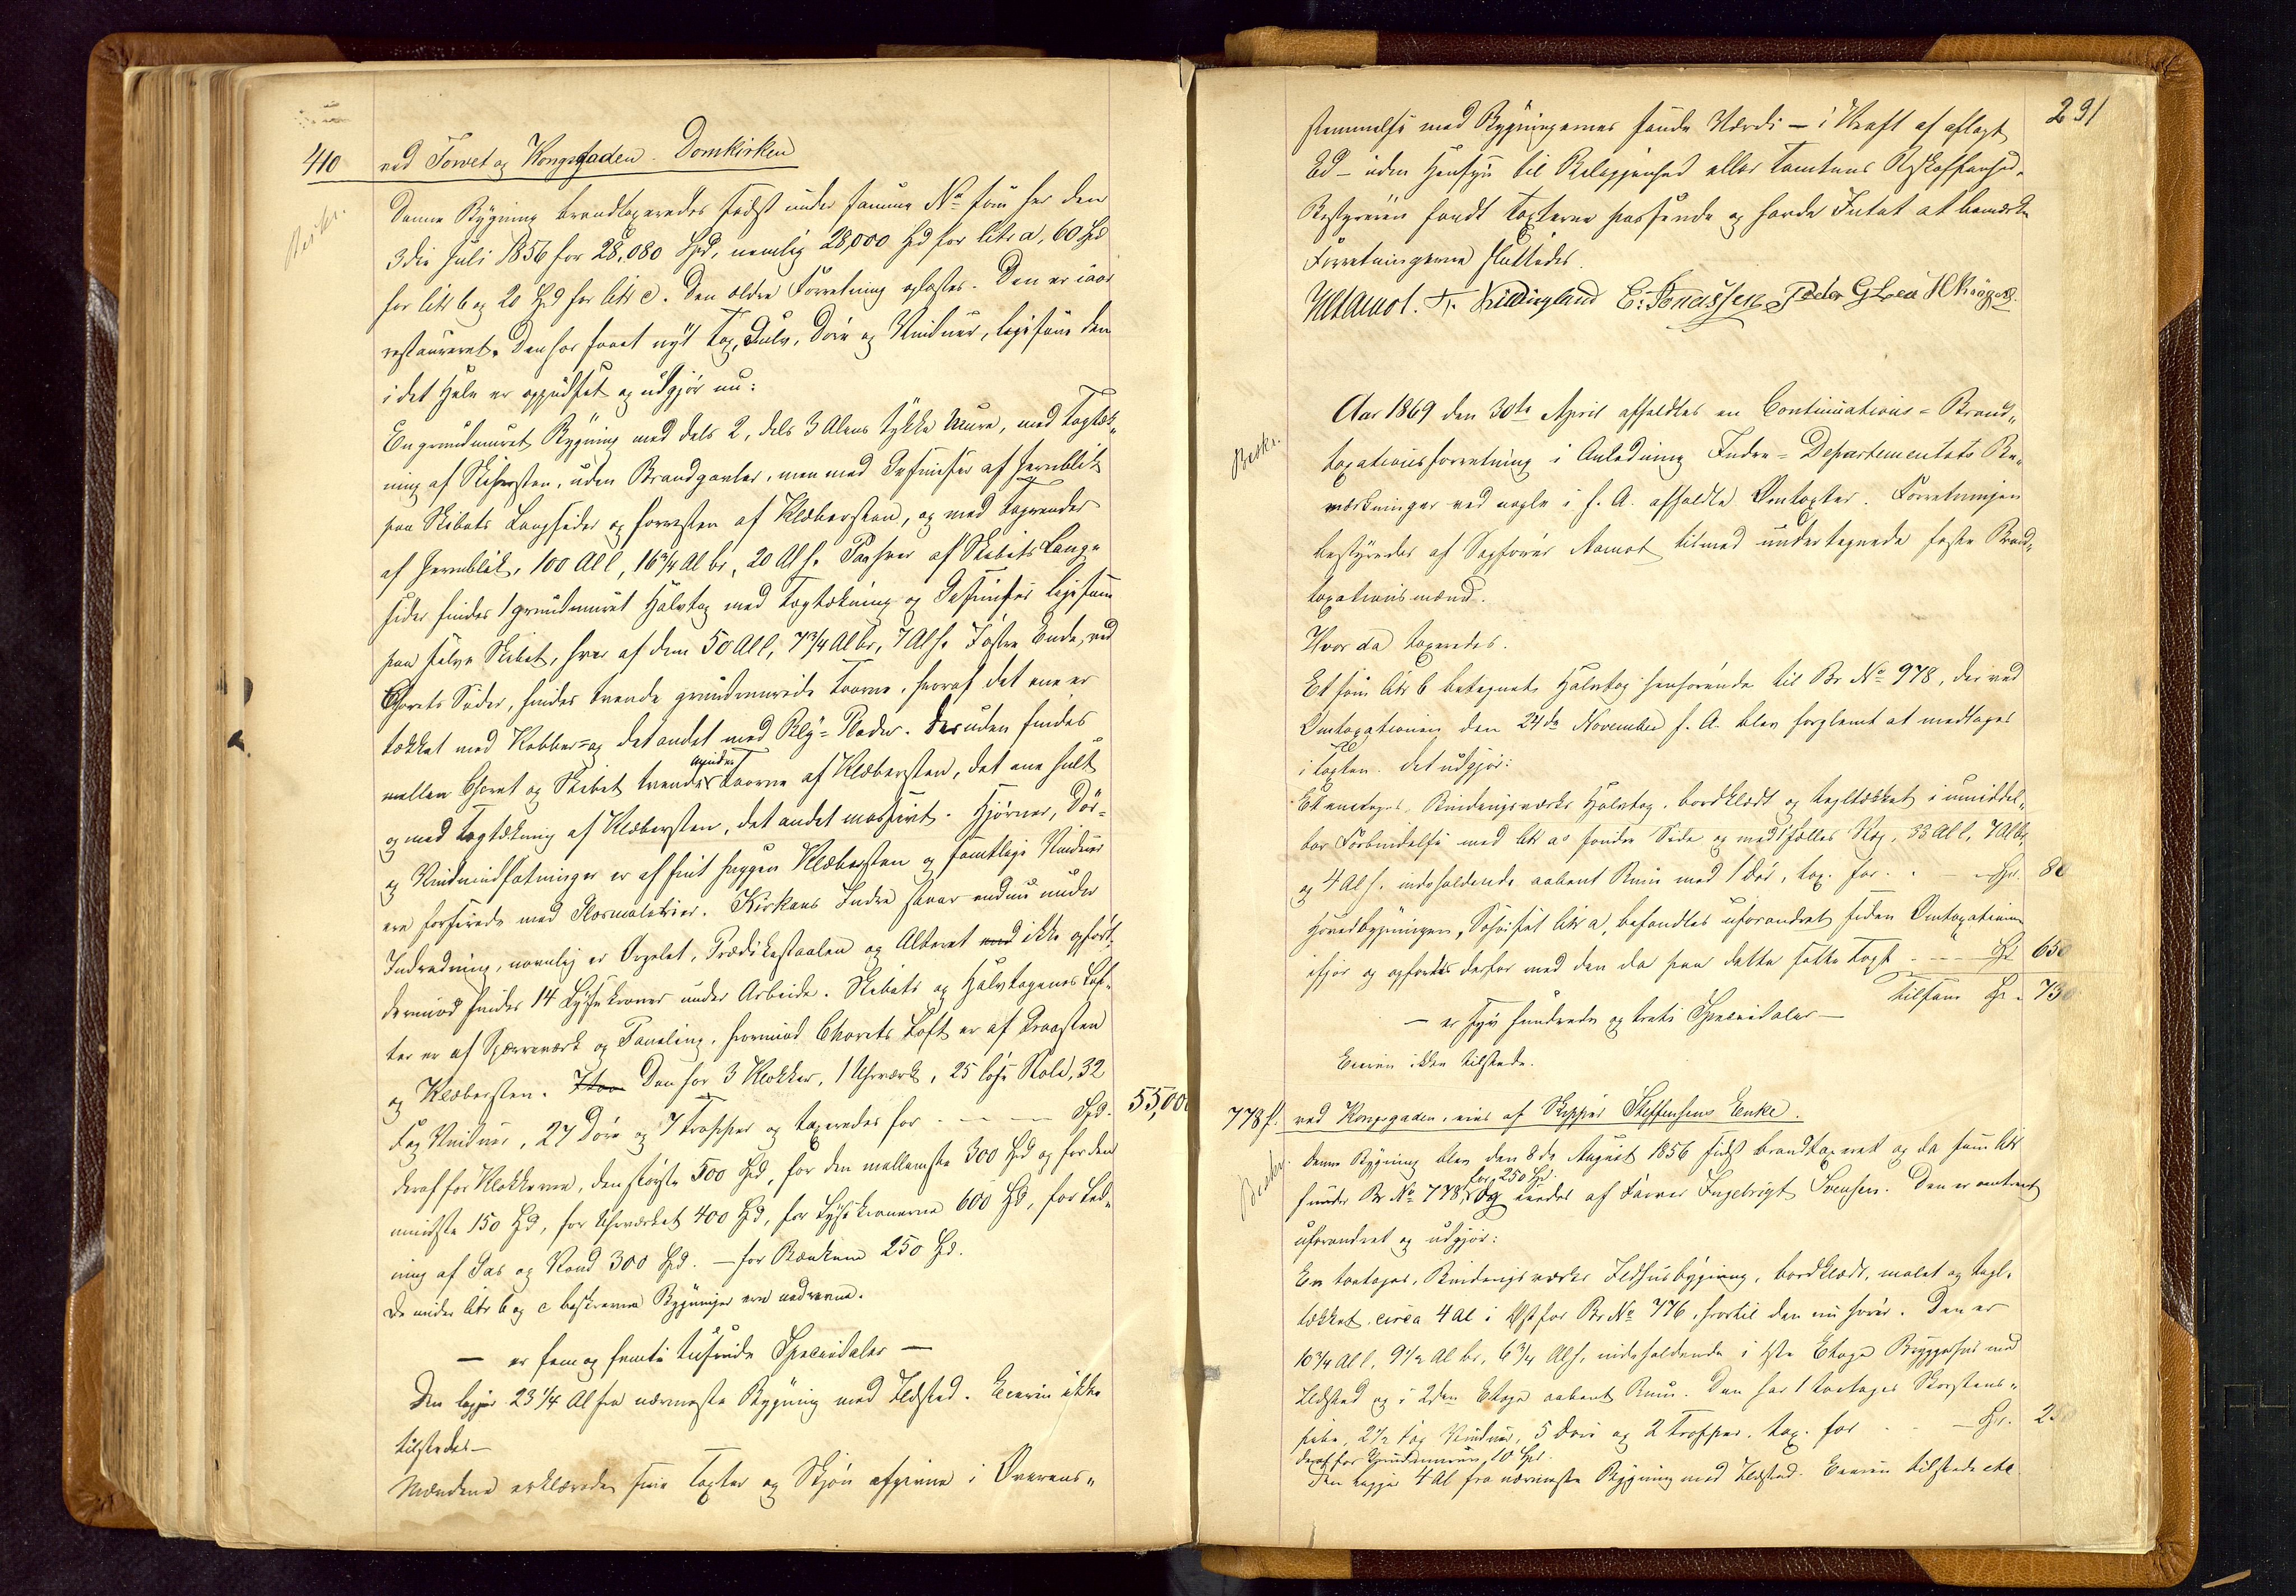 410 ved Torvet og Kongsgaden. Domkirken
Beskr.
Denne Bygning brandtaxeredes sidst under samme No som her den
3die Juli 1856 for 28,080 Spd, nemlig 28,000 Spd for litr a, 60 Spd
for litr b og 20 Spd for litr c. Den ældre Forretning oplæstes. Den er iaar
restaureret. Den har faaet nyt Tag, Gulv, Döre og Vinduer, ligesom den
i det Hele er oppudset og udgjör nu:
En grundmuret Bygning med dels 2, dels 3 Alens tykke Mure, med Tagtæk„
ning af Skifersten, uden Brandgavler, men med Gesimser af Jernblik
paa Skibets Langsider og forresten af Klæbersten, og med Tagrender
af Jernblik, 100 Al l, 16 3/4 Al br, 20 Al h. Paa hver af Skibets Lang„
sider findes 1 grundmuret Halvtag med Tagtækning og Gesimser ligesom
paa selve Skibet, hver af dem 50 Al l, 7 3/4 Al br, 7 Al h. I östre Ende, ved
Chorets Sider, findes tvende grundmurede Taarne, hvoraf det ene er
tækket med Kobber= og det andet med Bly=Plader. Desuden findes
mellem Choret og Skibet tvende mindre Taarne af Klæbersten, det ene hult
og med Tagtækning af Klæbersten, det andet massivt. Hjörner, Dör=
og Vindusindfatninger er af fint huggen Klæbersten og samtlige Vinduer
ere forsirede med Glasmalerier. Kirkens Indre staar endnu under
Indredning, navnlig er Orgelet, Prædikestolen og Alteret end ikke opfört,
derimod findes 14 Lysekroner under Arbeide. Skibets og Halvtagenes Lof„
ter er af Sperreværk og Paneling, hvorimod Chorets Loft er af Graasten
og Klæbersten. Den har 3 Klokker, 1 Uhrværk, 25 löse Stole, 32
Fag Vinduer, 27 Döre og 7 Trapper og taxeredes for . — — Spd. 55,000
deraf for Klokkerne, den störste 500 Spd, for den mellemste 300 Spd og for den
mindste 150 Spd, for Uhrværket 400 Spd, for Lysekronerne 600 Spd, for Led„
ning af Gas og Vand 300 Spd. — for Bænkene 250 Spd.
De under litr b og c beskrevne Bygninger ere nedrevne.
— er fem og femti tusinde Speciedaler —
Den ligger 23 1/4 Al fra nærmeste Bygning med Ildsted. Eieren ikke
tilstede.—
Mændene erklærede sine Taxter og Skjön afgivne i Overens„
291
stemmelse med Bygningernes sande Værdi — i Kraft af aflagt
Ed — uden Hensyn til Beliggenhed eller Tomtens Beskaffenhed.
Bestyreren fandt Taxterne passende og havde Intet at bemærke
Forretningerne sluttedes.
Aamot. T. Kielland E. Tönnessen Peder G Lea H Kröger.
Beskr.
Aar 1869 den 30te April afholdtes en Continuations=Brand„
taxationsforretning i Anledning Indre=Departementets Be„
mærkninger ved nogle i f. A. afholdte Omtaxter. Forretningen
bestyredes af Sagförer Aamot tilmed undertegnede faste Brand„
taxationsmænd.
Hvor da taxeredes.
Et som litr b betegnet Halvtag henhörende til Br No 978, der ved
Omtaxationen den 24de November f. A. blev forglemt at medtages
i Taxten. Det udgjör:
Et enetages Bindingsværks Halvtag, bordklædt og tegltækket i umiddel„
bar Forbindelse med litr a's söndre Side og med fælles Væg, 33 Al l, 7 Al br,
og 4 Al h. indeholdende aabent Rum med 1 Dör, tax. for . . — Spd. 80
Hovedbygningen, Söhuset litr a, befandtes uforandret siden Omtaxationen
ifjor og opföres derfor med den da paa dette satte Taxt . — — Spd 650
Tilsam Spd. 730
— er syv hundrede og treti Speciedaler —
Eieren ikke tilstede.
778 f. ved Kongsgaden, eies af Skipper Steffensens Enke.
Beskr.
Denne Bygning blev den 8de August 1856 sidst brandtaxeret og da som litr
f under Br No 778, for 250 Spd. og eiedes af Farver Ingebrigt Svensen. Den er omtrent
uforandret og udgjör:
En toetages, Bindingsværks Ildhusbygning, bordklædt, malet og tegl„
tækket, circa 4 Al i Öst for Br No 776, hvortil den nu hörer. Den er
10 3/4 Al l, 9 1/2 Al br, 6 3/4 Al h, indeholdende i 1ste Etage Bryggehus med
Ildsted og i 2den Etage aabent Rum. Den har 1 toetages Skorstens„
pibe, 2 1/2 Fag Vinduer, 5 Döre og 2 Trapper, tax. for . . — Spd. 250
deraf for Grundmuren, 10 Spd.
Den ligger 4 Al fra nærmeste Bygning med Ildsted. Eieren tilstede etc